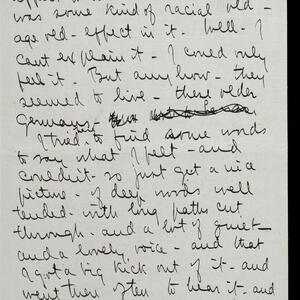 was some kind of racial old -
age old - effect in it. Well - I
cant explain it - I could only
feel it. But any how - they
seemed to live - these older
Germans -
I tried to find some words
to say what I felt - and
couldnt - so just got a nice
picture - of deep woods well
tended - with long paths cut
through - and a lot of quiet -
and a lovely voice - and that
I got a big kick out of it - and
went then often to hear it - and